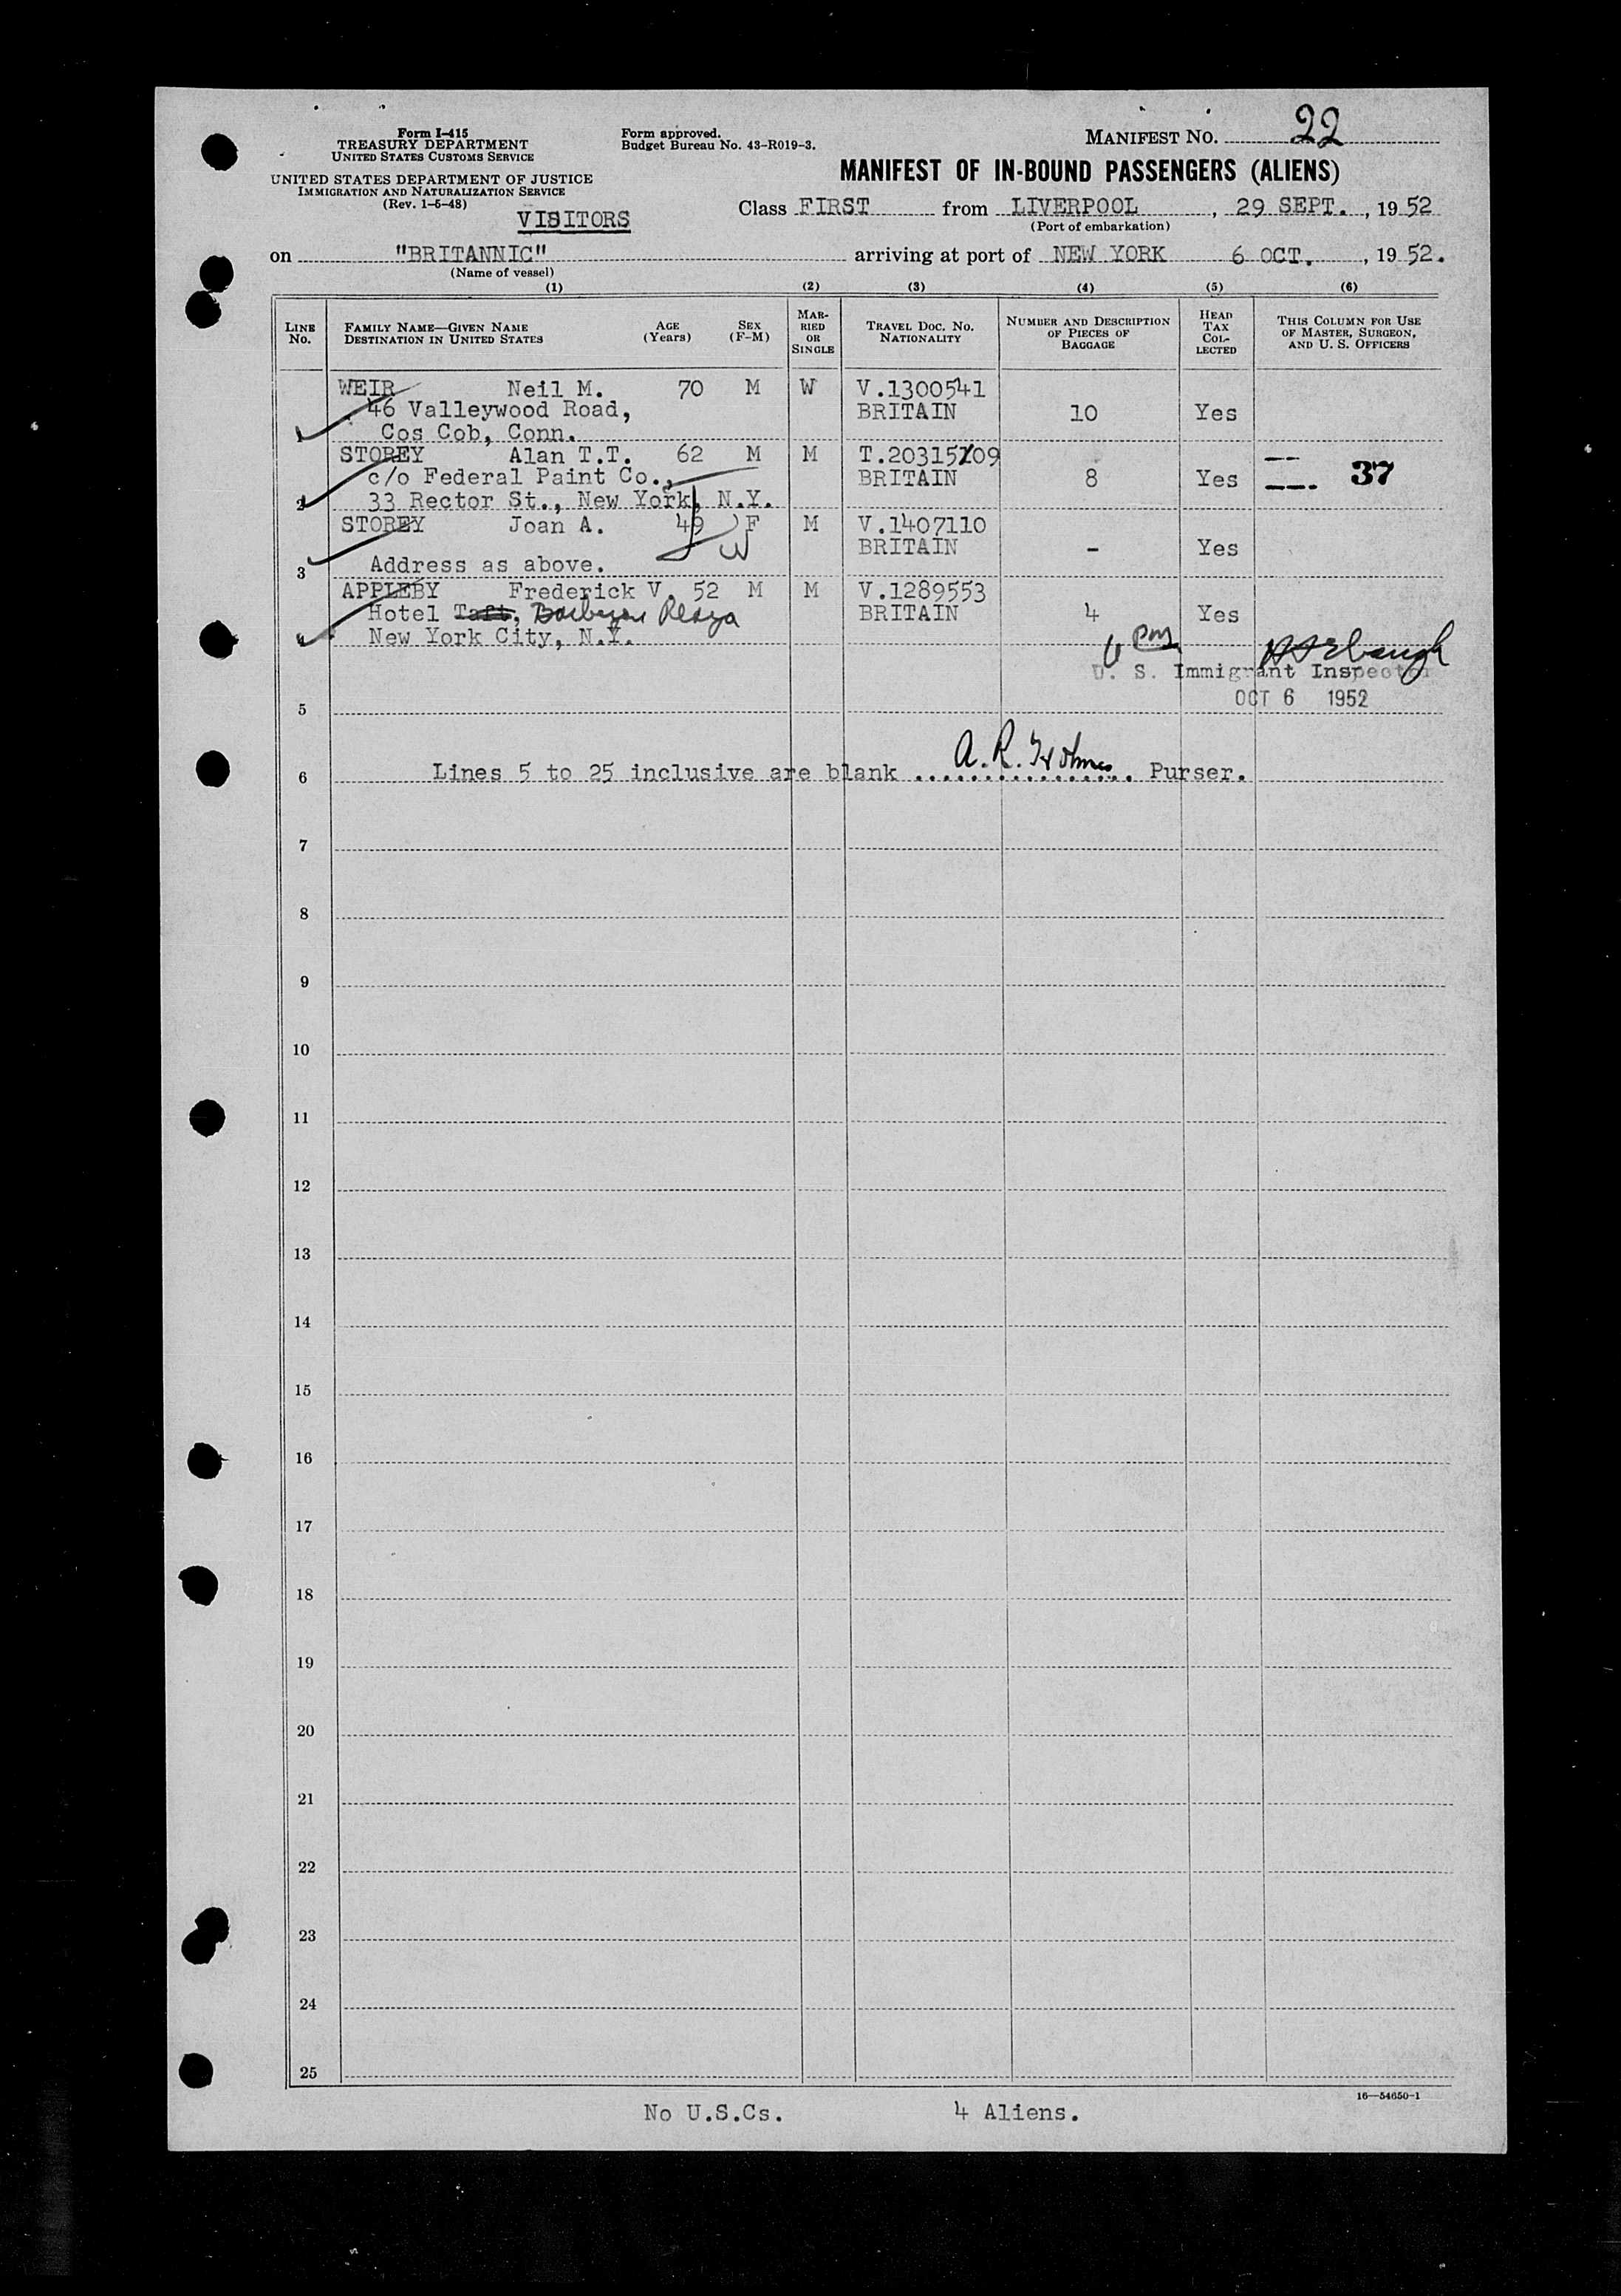 Form I-415
TREASURY DEPARTMENT
UNITED STATES CUSTOMS SERVICE
UNITED STATES DEPARTMENT OF JUSTICE
IMMIGRATION AND NATURALIZATION SERVICE
(Rev. 1-5-48)
Form approved.
Budget Bureau No. 43-R019-3.
MANIFEST NO. 22
MANIFEST OF IN-BOUND PASSENGERS (ALIENS)
VISITORS
Class FIRST from LIVERPOOL, 29 SEPT., 1952
(Port of embarkation)
on "BRITANNIC" arriving at port of NEW YORK 6 OCT., 1952.
(Name of vessel)
(1) (2) (3) (4) (5) (6)
LINE No. FAMILY NAME—GIVEN NAME DESTINATION IN UNITED STATES AGE (Years) SEX (F-M) MARRIED OR SINGLE TRAVEL DOC. NO. NATIONALITY NUMBER AND DESCRIPTION OF PIECES OF BAGGAGE HEAD TAX COLLECTED THIS COLUMN FOR USE OF MASTER, SURGEON, AND U. S. OFFICERS
WEIR Neil M. 70 M W V.1300541
46 Valleywood Road, BRITAIN 10 Yes
1 Cos Cob, Conn.
STOREY Alan T.T. 62 M M T.20315109
c/o Federal Paint Co., BRITAIN 8 Yes 37
2 33 Rector St., New York, N.Y.
STOREY Joan A. 49 F M V.1407110
W BRITAIN - Yes
3 Address as above.
APPLEBY Frederick V. 52 M M V.1289553
Hotel Taft, Barbizon Plaza BRITAIN 4 Yes
4 New York City, N.Y.
U. S. Immigrant Inspector
OCT 6 1952
5
6 Lines 5 to 25 inclusive are blank A. R. Holmes Purser.
7
8
9
10
11
12
13
14
15
16
17
18
19
20
21
22
23
24
25
16—54650-1
No U.S.Cs. 4 Aliens.